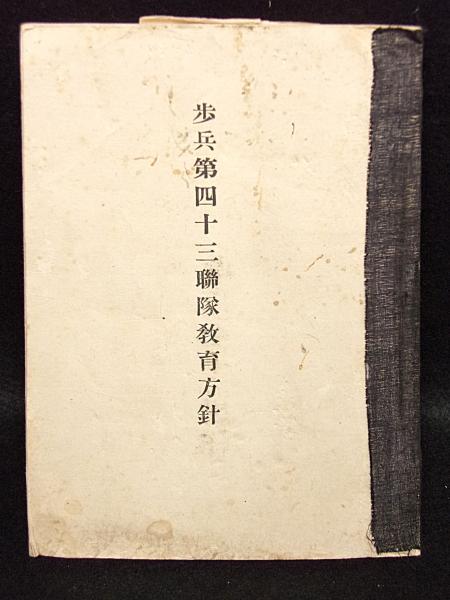 歩兵第四十三聯隊教育方針